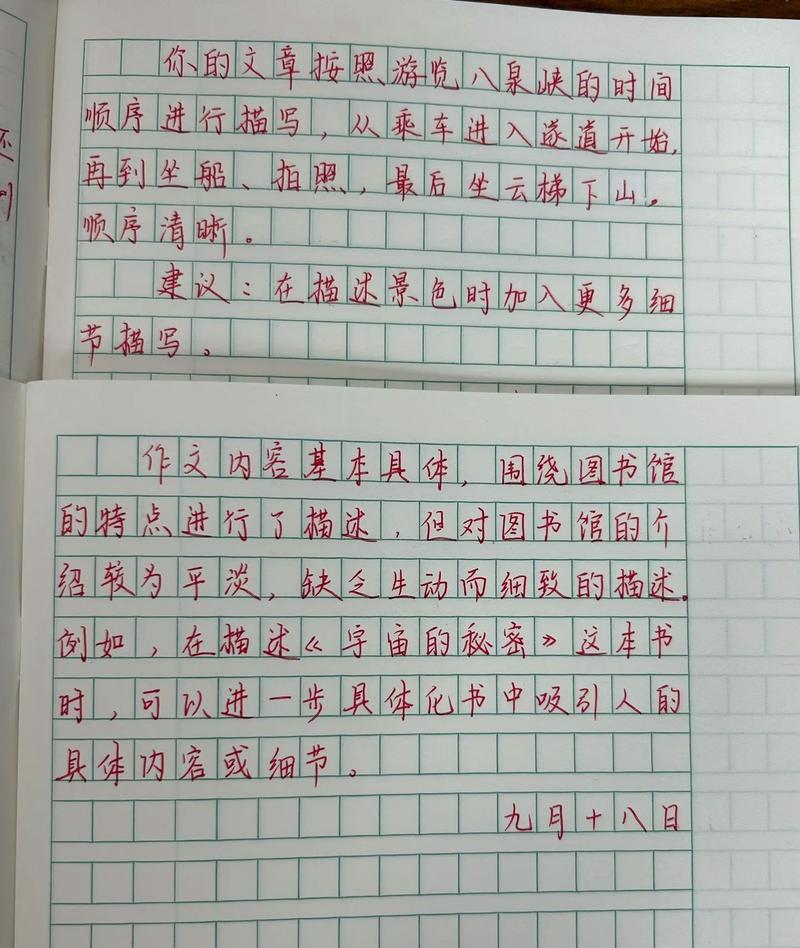 你的文章按照游览八泉峡的时间
顺序进行描写，从乘车进入遂道开始，
再到坐船、拍照，最后坐云梯下山。
顺序清晰。
建议：在描述景色时加入更多细
节描写。
作文内容基本具体，围绕图书馆
的特点进行了描述，但对图书馆的介
绍较为平淡，缺乏生动而细致的描述。
例如，在描述《宇宙的秘密》这本书
时，可以进一步具体化书中吸引人的
具体内容或细节。
九月十八日